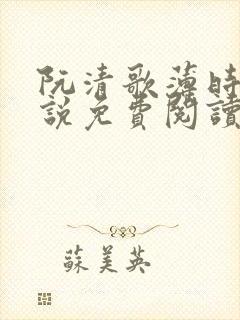 阮清歌薄時
說免費閱讀
蘇美英